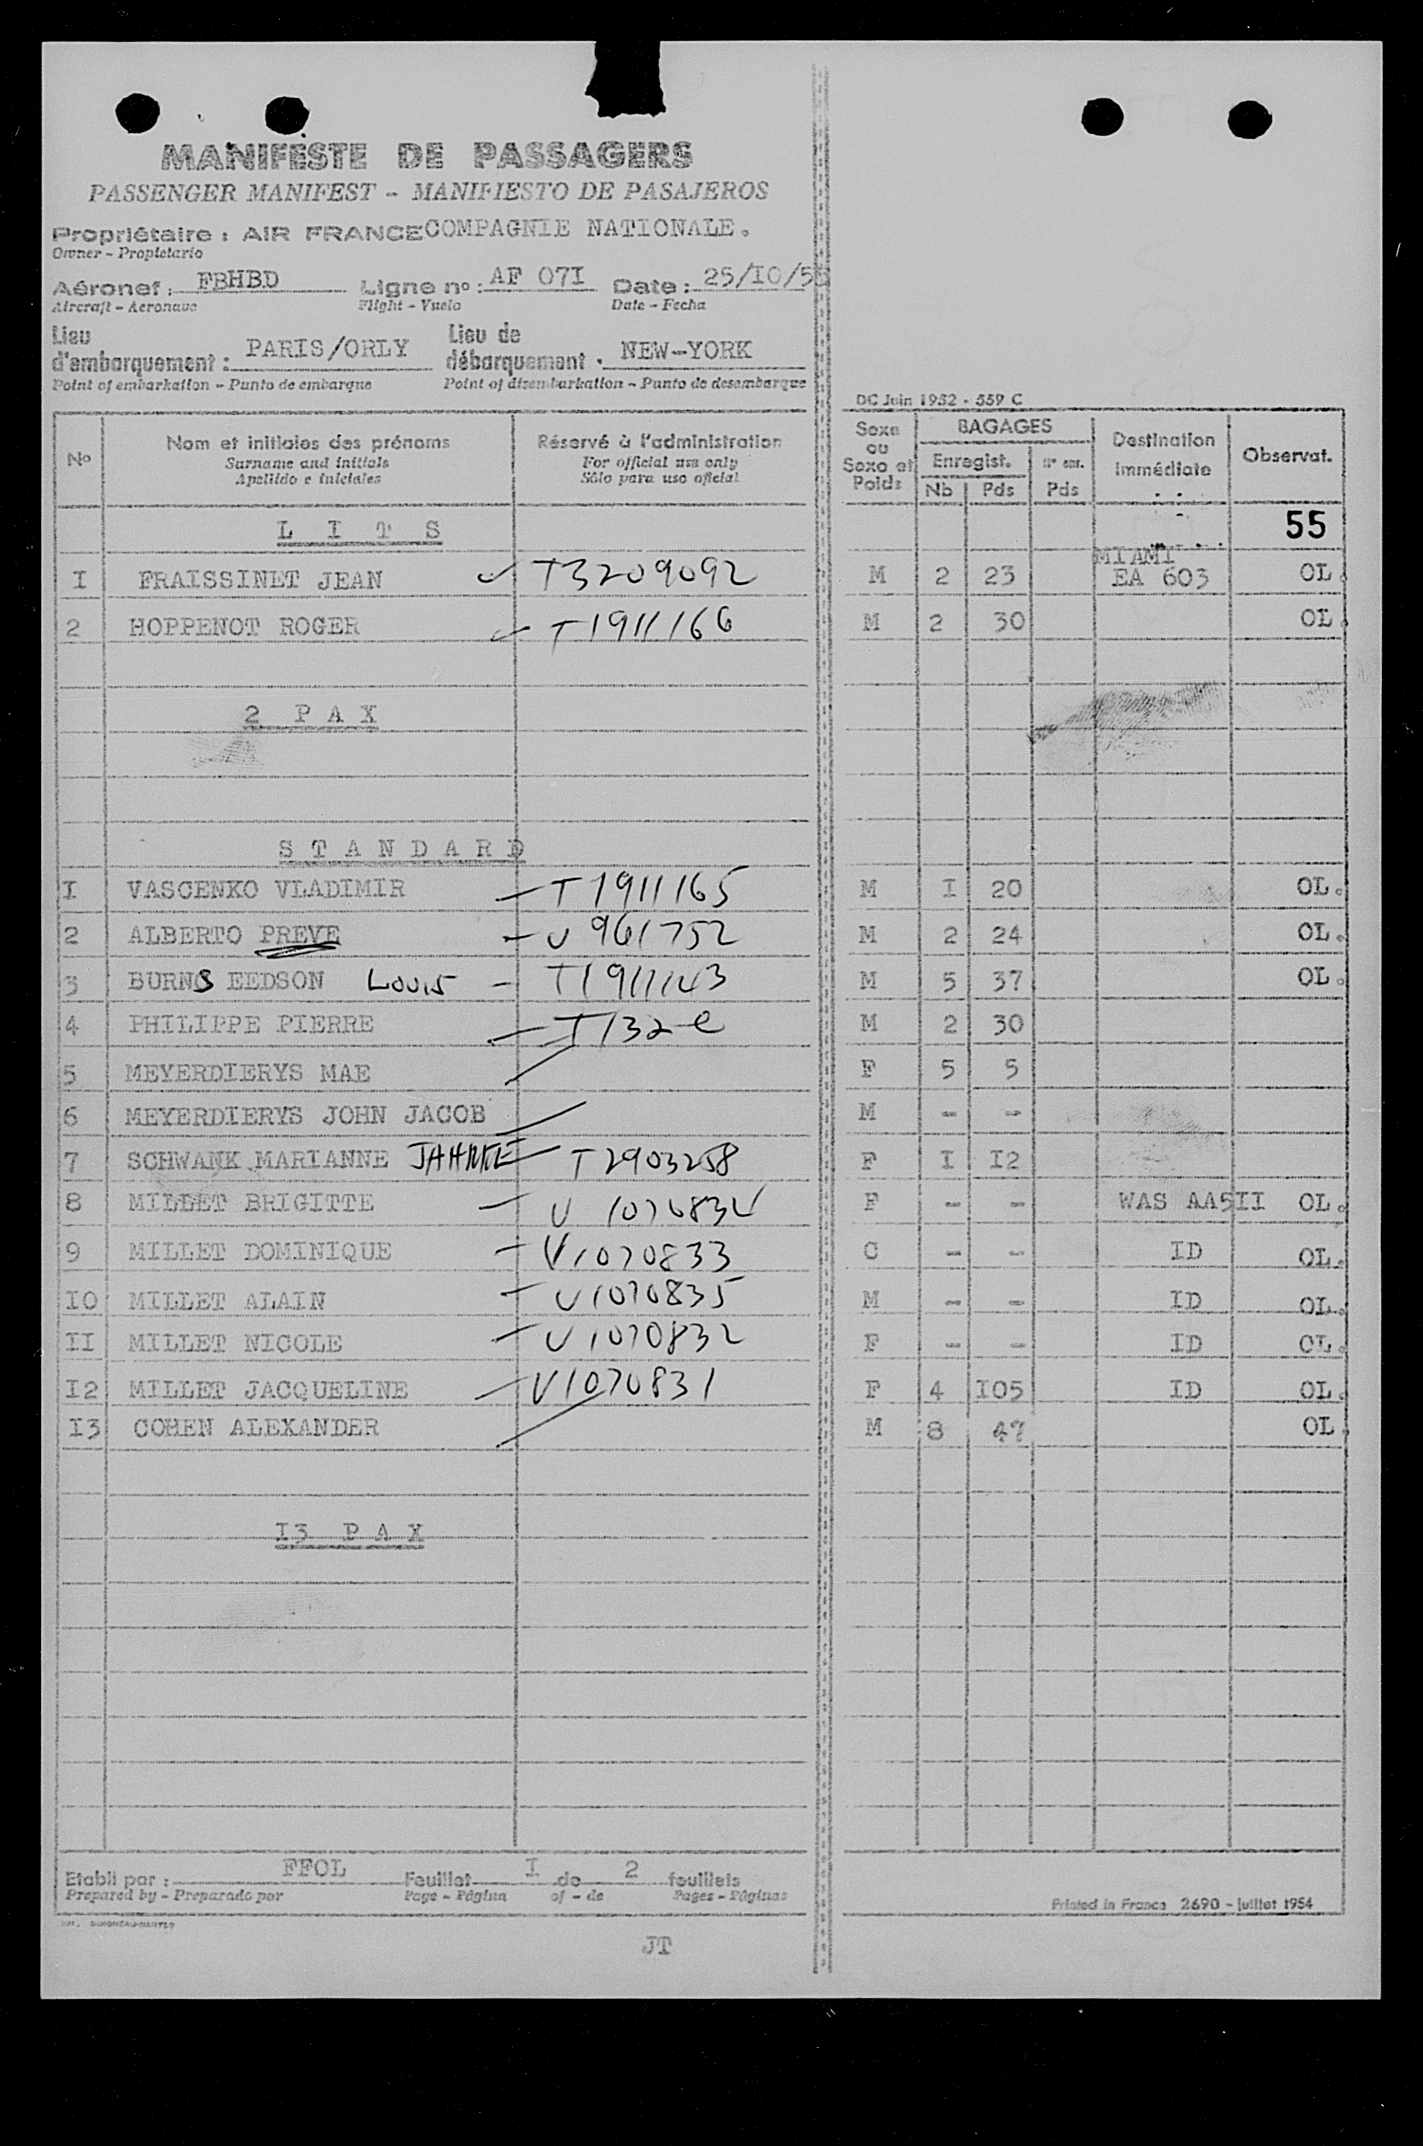 MANIFESTE DE PASSAGERS
PASSENGER MANIFEST - MANIFIESTO DE PASAJEROS
Propriétaire : AIR FRANCE COMPAGNIE NATIONALE.
Owner - Propietario
Aéronef : FBHBD Ligne no : AF 07I Date : 25/IO/55
Aircraft - Aeronave Flight - Vuelo Date - Fecha
Lieu d'embarquement : PARIS/ORLY Lieu de débarquement . NEW-YORK
Point of embarkation - Punto de embarque Point of disembarkation - Punto de desembarque
DC Juin 1952 - 559 C
No Nom et initiales des prénoms Réservé à l'administration Sexe ou Sexe et Poids BAGAGES Destination immédiate Observat.
Surname and initials For official use only Enregist.
Apellido e iniciales Sólo para uso oficial Nb Pds Pds
L I T S 55
MIAMI
I FRAISSINET JEAN T3209092 M 2 23 EA 603 OL.
2 HOPPENOT ROGER T1911166 M 2 30 OL.
2 P A X
S T A N D A R D
I VASCENKO VLADIMIR T1911165 M I 20 OL.
2 ALBERTO PREVE U 961752 M 2 24 OL.
3 BURNS EEDSON Louis T1911143 M 5 37 OL.
4 PHILIPPE PIERRE M 2 30
5 MEYERDIERYS MAE F 5 5
6 MEYERDIERYS JOHN JACOB M - -
7 SCHWANK MARIANNE JAHNKE T2903258 F I I2
8 MILLET BRIGITTE V 1070834 F - - WAS AA5II OL.
9 MILLET DOMINIQUE V1070833 C - - ID OL.
IO MILLET ALAIN V1070835 M - - ID OL.
II MILLET NICOLE V1070832 F - - ID OL.
I2 MILLET JACQUELINE V1070831 F 4 I05 ID OL.
I3 COHEN ALEXANDER M 8 47 OL.
I3 P A X
Etabli par : FFOL Feuillet I de 2 feuillets
Prepared by - Preparado por Page - Página of - de Pages - Páginas
Printed in France 2690 - juillet 1954
JT